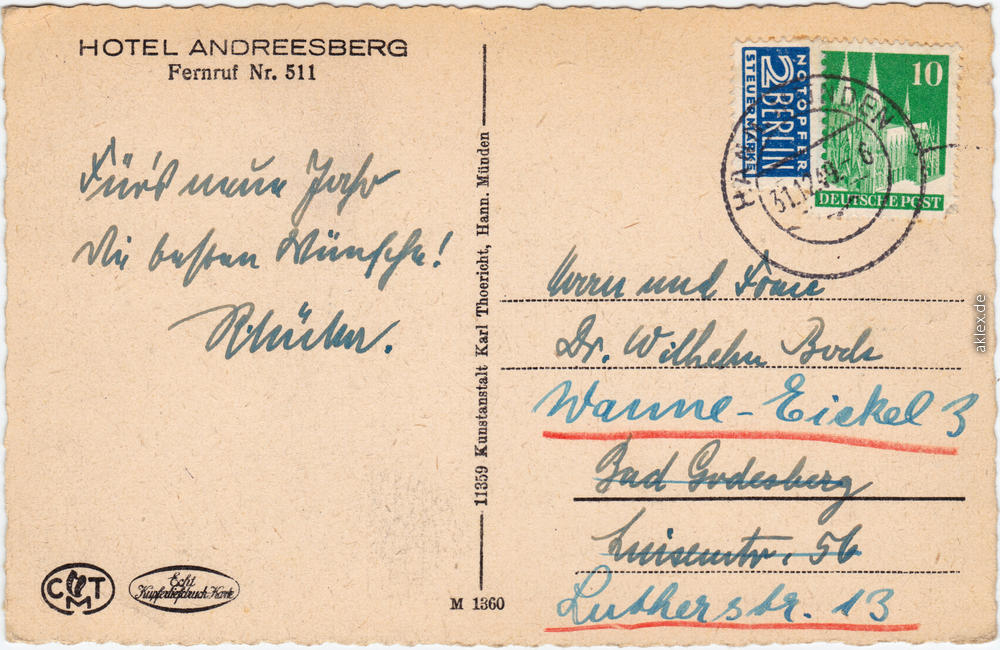 HOTEL ANDREESBERG
Fernruf Nr. 511
Für's neue Jahr
die besten Wünsche!
11359 Kunstanstalt Karl Thoericht, Hann. Münden
M 1360
CMT
Echt
Kupfertiefdruck Karte
NOTOPFER
2 BERLIN
STEUERMARKE
10
DEUTSCHE POST
HANN. MÜNDEN
31.12.49.-6
Herrn und Frau
Dr. Wilhelm Bock
Wanne-Eickel 3
Bad Godesberg
Luisenstr. 56
Lutherstr. 13
aklex.de